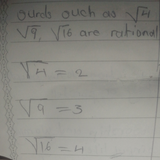 Surds such as √4
√9, √16 are rational
√4 = 2
√9 = 3
√16 = 4